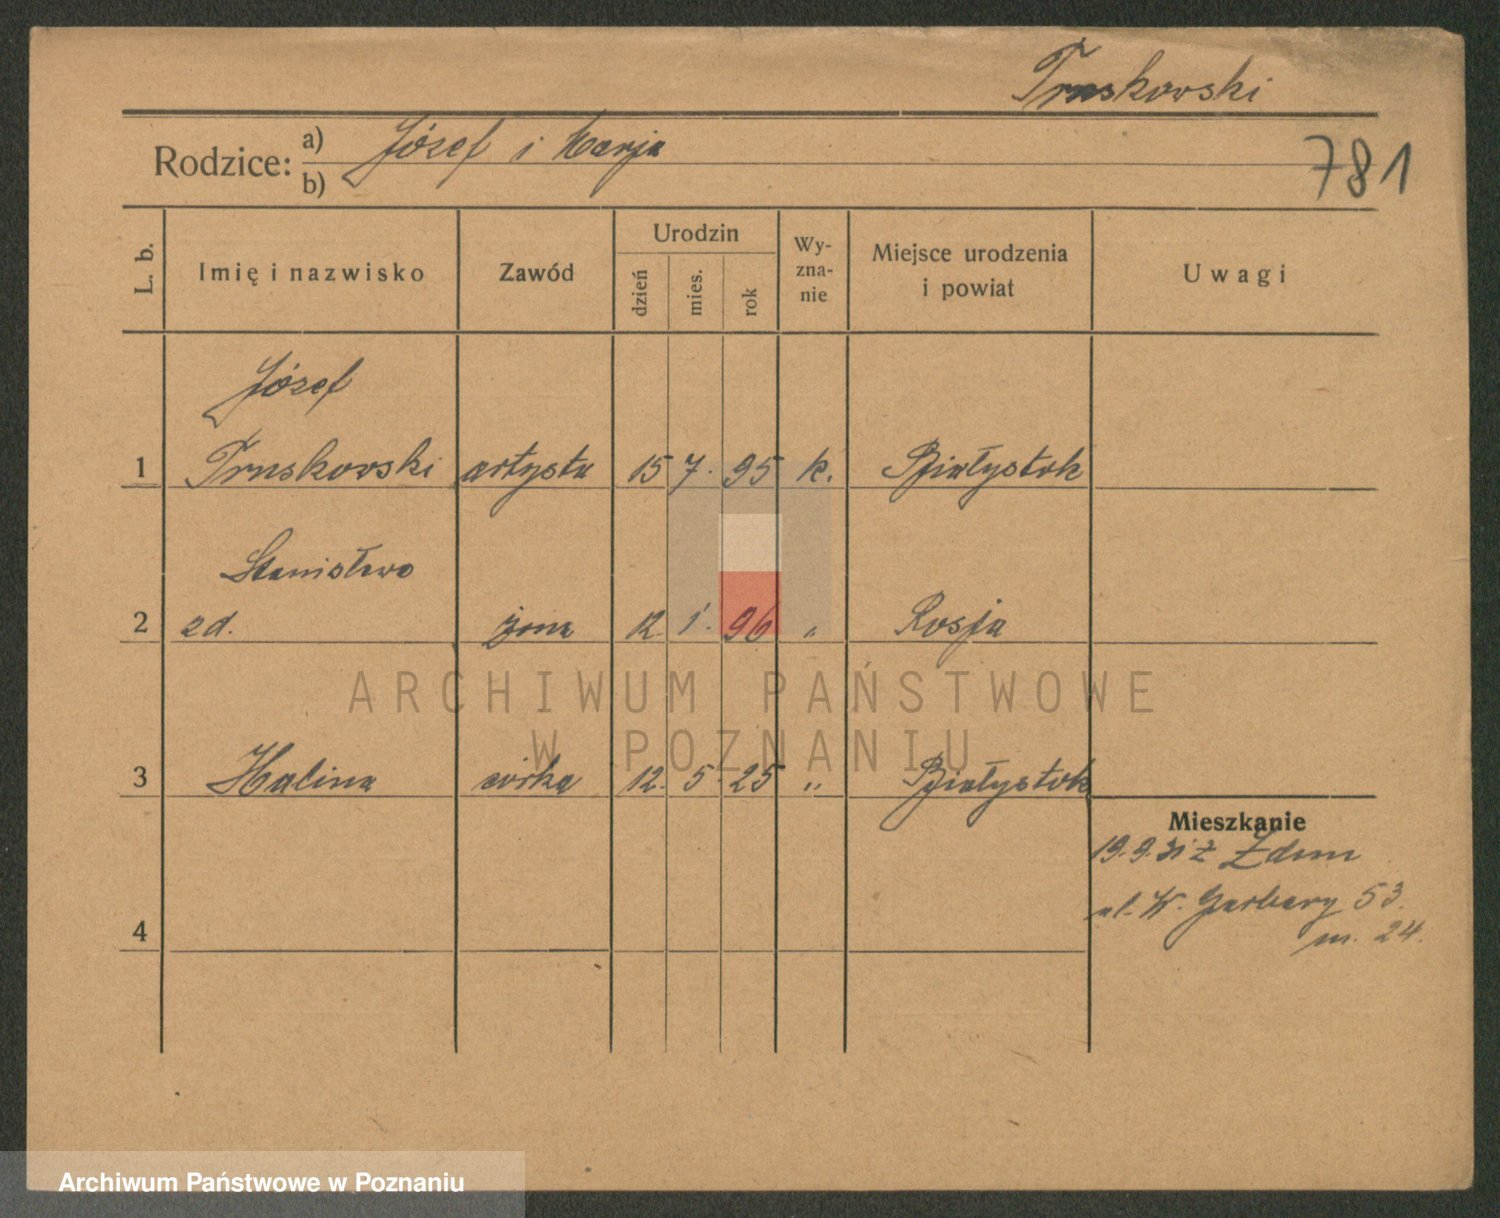 Trnskowski
Rodzice: a) Józef i Marja
b)
781
L. b. Imię i nazwisko Zawód Urodzin dzień mies. rok Wy-zna-nie Miejsce urodzenia i powiat Uwagi
Józef
1 Trnskowski artysta 15 7. 95 k. Białystok
Stanisława
2 zd. żona 12. 1. 96 " Rosja
3 Halina córka 12. 5. 25 " Białystok
Mieszkanie
19. 9. 31 z Zdun
ul. W. Garbary 53.
m. 24.
4
ARCHIWUM PAŃSTWOWE
W POZNANIU
Archiwum Państwowe w Poznaniu